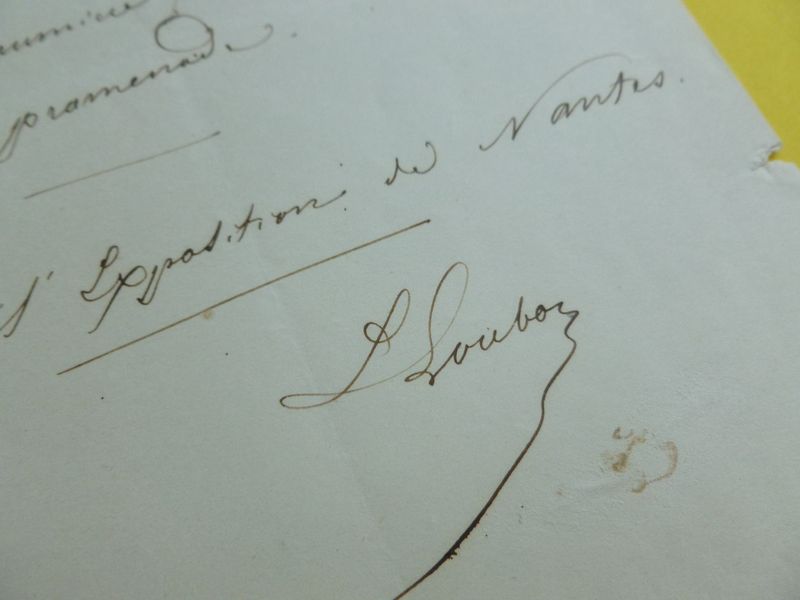 promenade.
l'Exposition de Nantes.
E Loubon